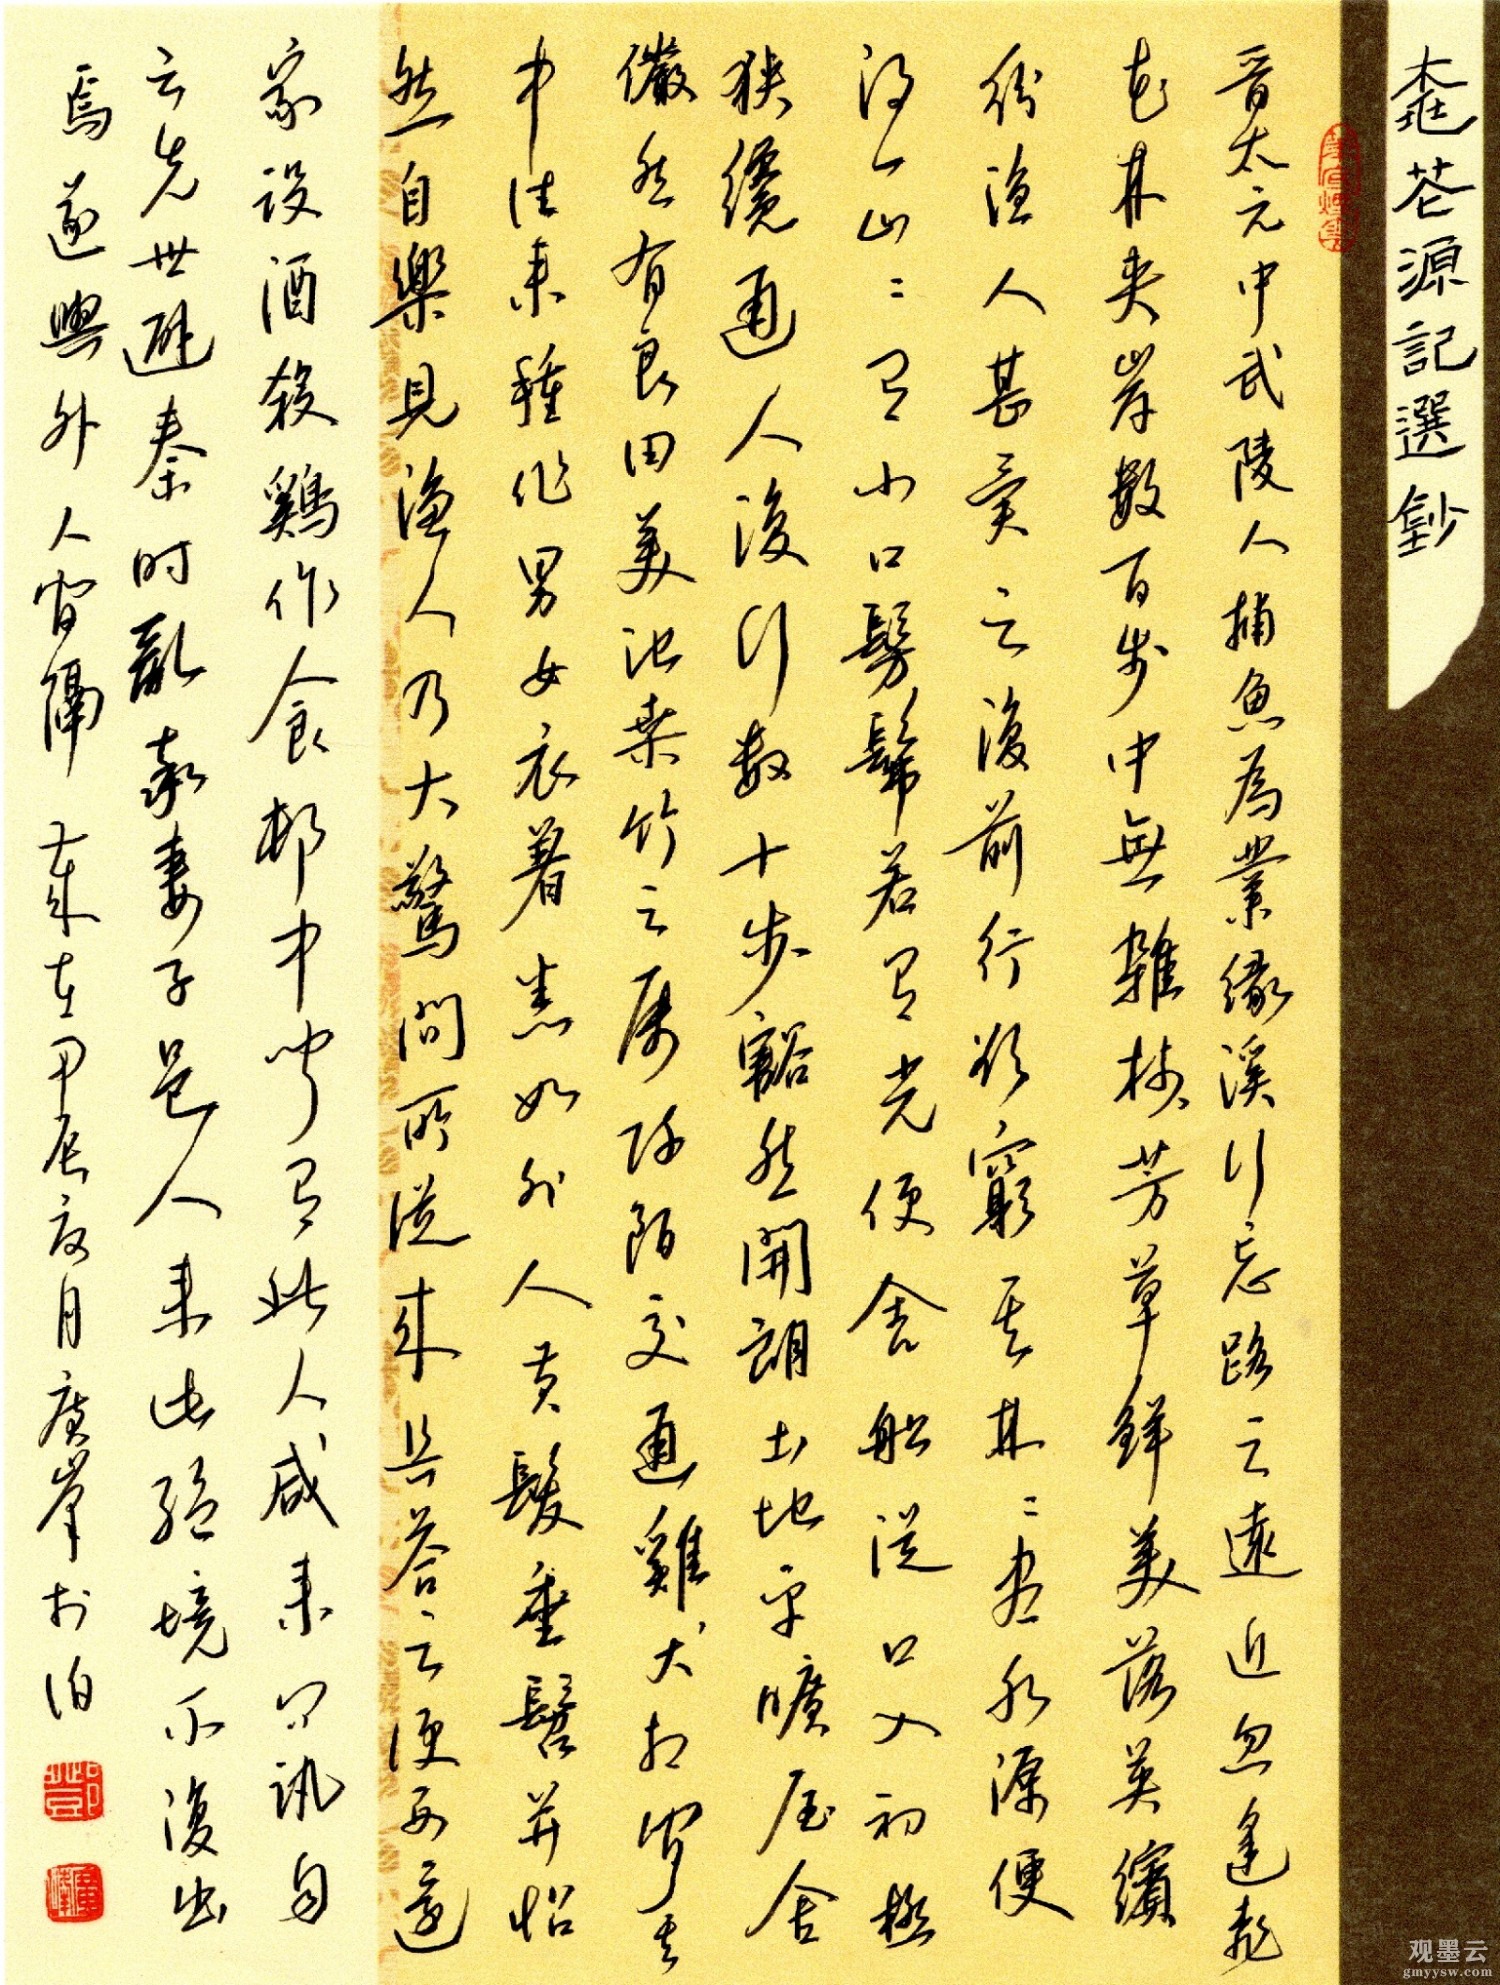 桃花源記選鈔
晋太元中武陵人捕魚為業緣溪行忘路之遠近忽逢桃
花林夾岸數百步中無雜樹芳草鲜美落英繽
紛漁人甚異之復前行欲窮其林〻盡水源便
得一山〻有小口髣髴若有光便舍船從口入初極
狹纔通人復行数十步豁然開朗土地平曠屋舍
儼然有良田美池桑竹之属阡陌交通雞犬相聞其
中往来種作男女衣著悉如外人黄髮垂髫并怡
然自樂見漁人乃大驚問所從来具答之便要還
家設酒殺鷄作食邨中聞有此人咸来問訊自
云先世避秦时亂率妻子邑人来此絶境不復出
焉遂與外人間隔 歲在甲辰夏月廣峯於泊
观墨云
gmyysw.com